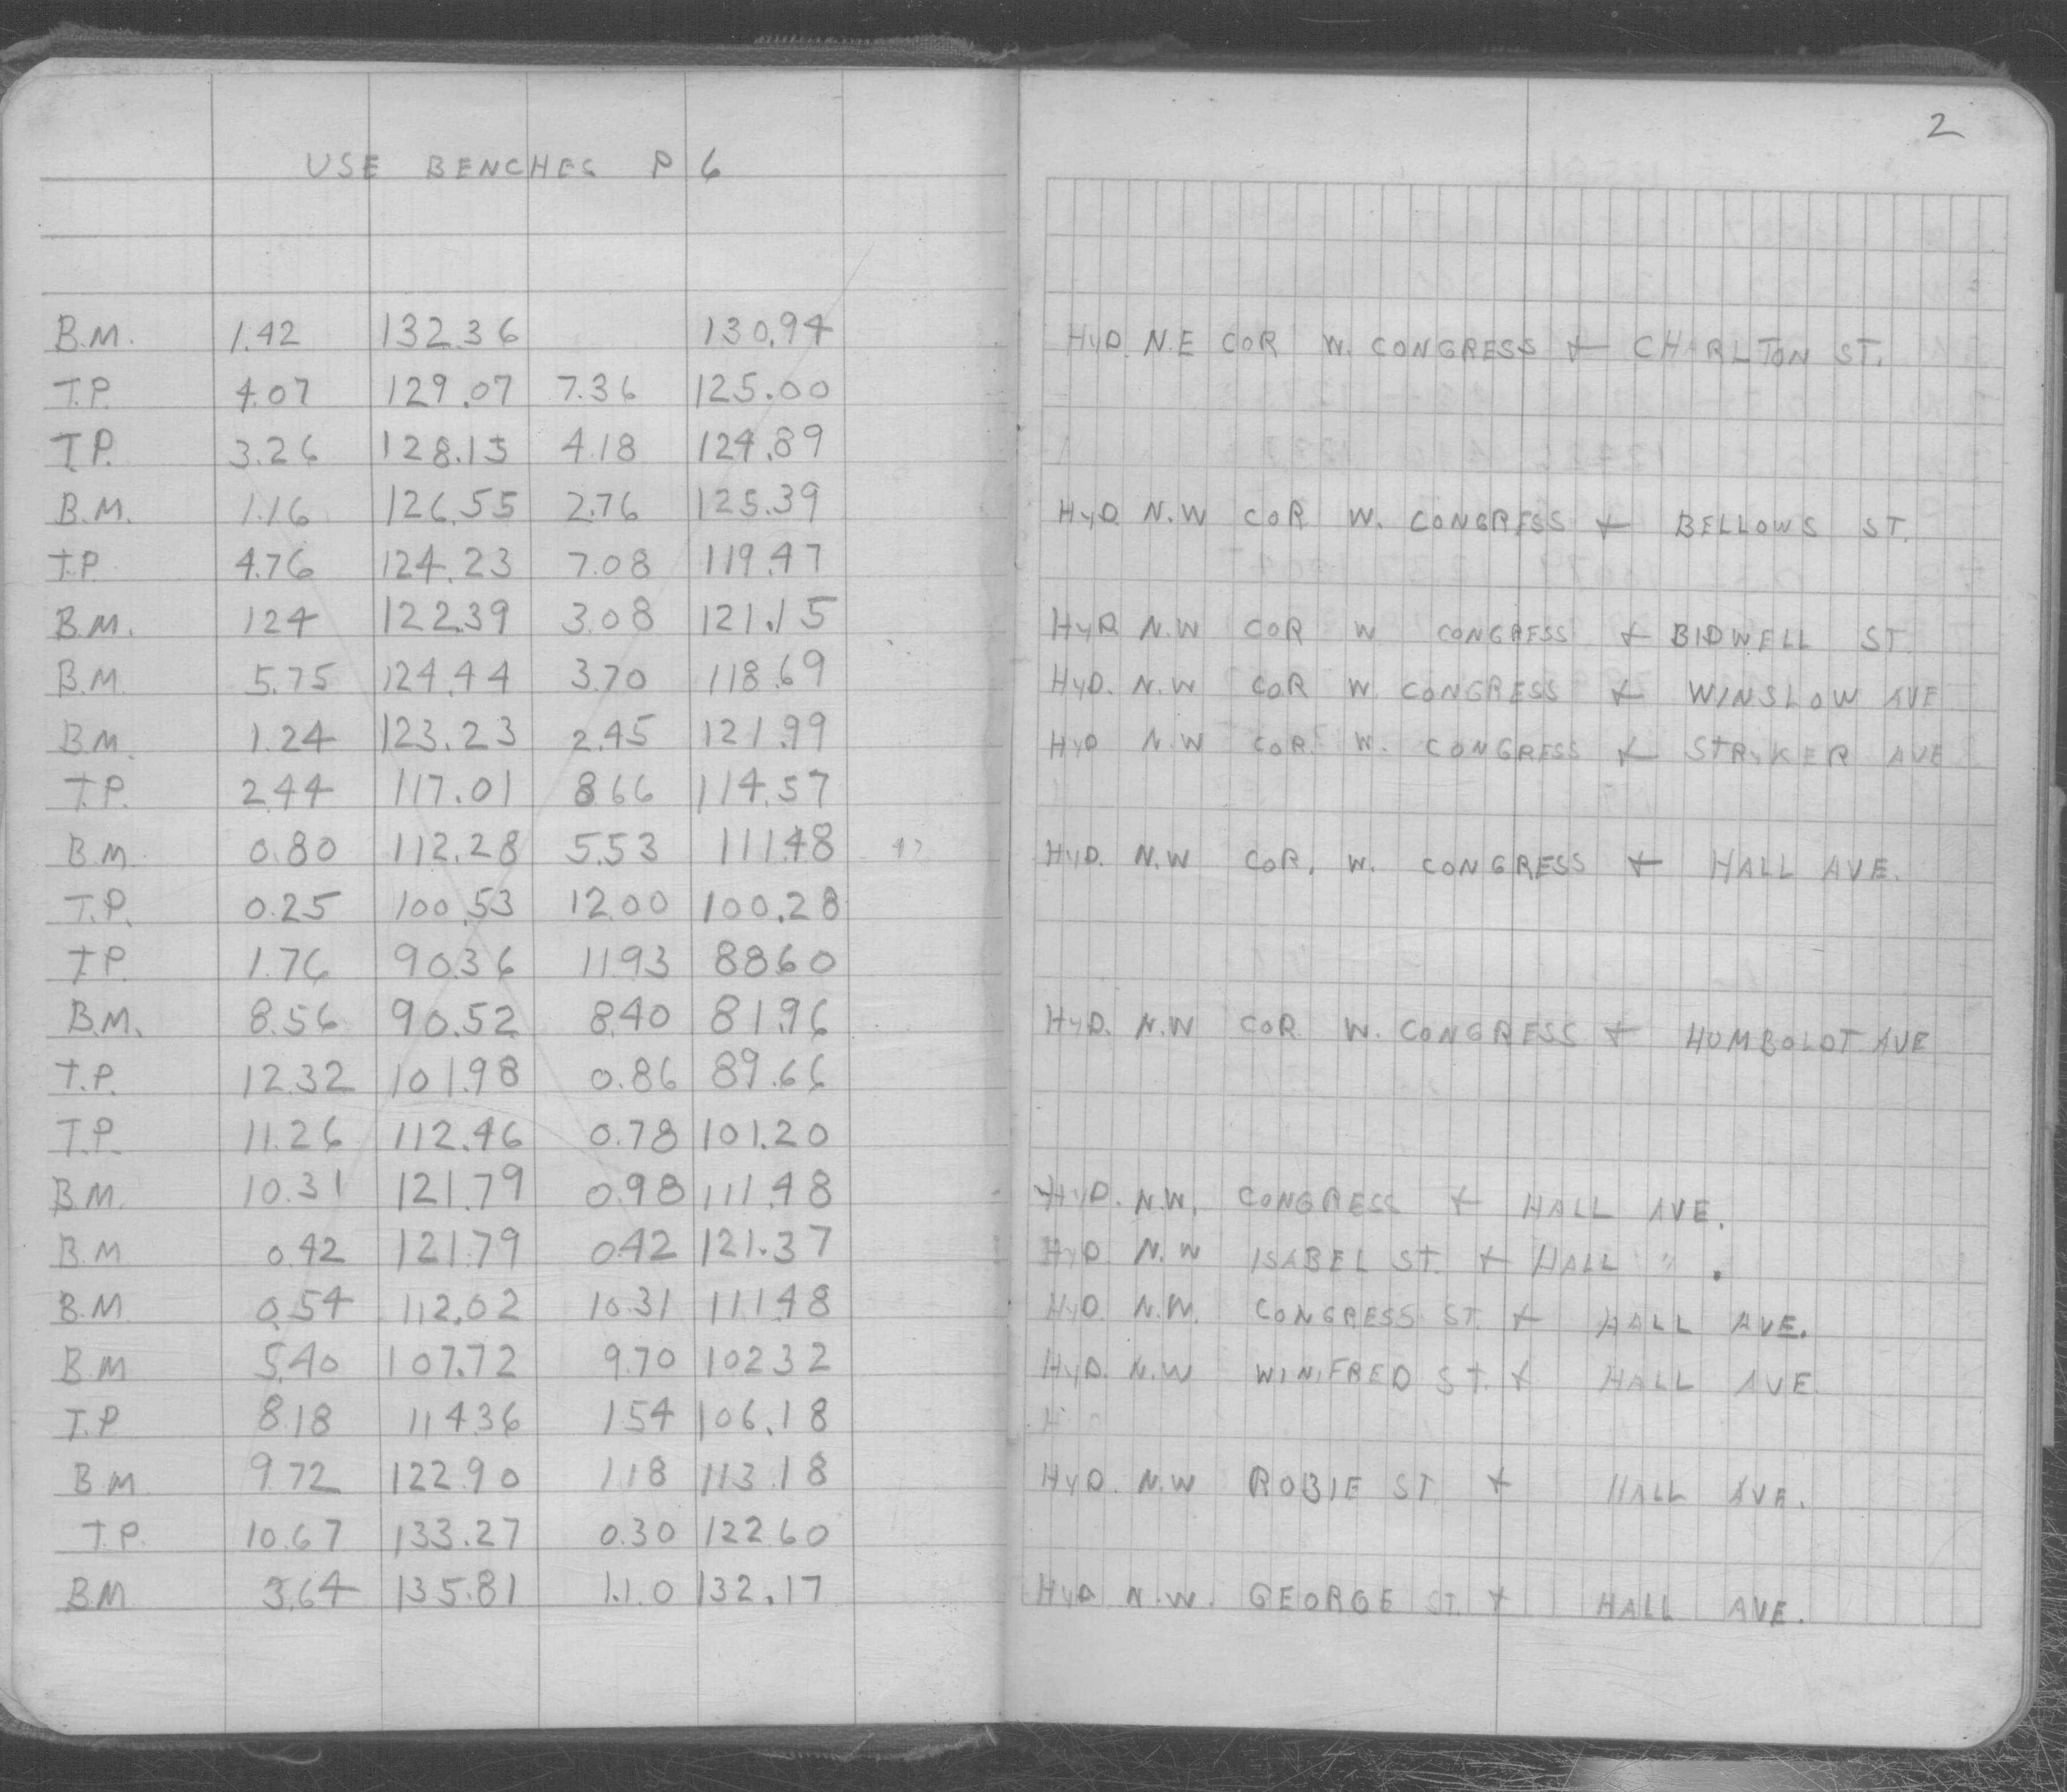 2
USE BENCHES P 6
B.M. 1.42 132.36 130.94 HYD. N.E COR W. CONGRESS & CHARLTON ST.
T.P. 4.07 129.07 7.36 125.00
T.P. 3.26 128.15 4.18 124.89
B.M. 1.16 126.55 2.76 125.39 HYD. N.W COR W. CONGRESS & BELLOWS ST.
T.P. 4.76 124.23 7.08 119.47
B.M. 124 122.39 3.08 121.15 HYD. N.W COR W CONGRESS & BIDWELL ST
B.M. 5.75 124.44 3.70 118.69 HYD. N.W COR W. CONGRESS & WINSLOW AVE
B.M. 1.24 123.23 2.45 121.99 HYD N.W COR. W. CONGRESS & STRYKER AVE
T.P. 2.44 117.01 866 114.57
B.M. 0.80 112.28 5.53 111.48 HYD. N.W COR. W. CONGRESS & HALL AVE.
T.P. 0.25 100.53 12.00 100.28
T.P. 1.76 90.36 11.93 8860
B.M. 8.56 90.52 8.40 81.96 HYD. N.W COR W. CONGRESS & HUMBOLDT AVE
T.P. 12.32 101.98 0.86 89.66
T.P. 11.26 112.46 0.78 101.20
B.M. 10.31 121.79 0.98 111.48 HYD. N.W. CONGRESS & HALL AVE.
B.M 0.42 121.79 0.42 121.37 HYD N.W ISABEL ST. & HALL " .
B.M 0.54 112.02 10.31 111.48 HYD. N.W. CONGRESS ST. & HALL AVE.
B.M 5.40 107.72 9.70 10232 HYD. N.W WINIFRED ST. & HALL AVE.
T.P 8.18 114.36 1.54 106.18
B.M 9.72 122.90 1.18 113.18 HYD. N.W ROBIE ST & HALL AVE.
T.P. 10.67 133.27 0.30 122.60
B.M 3.64 135.81 1.1.0 132.17 HYD N.W. GEORGE ST. & HALL AVE.